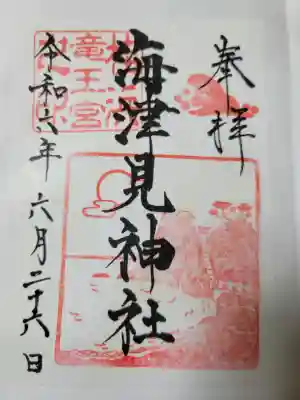 奉拝
海津見神社
竜王宮
令和六年 六月二十六日